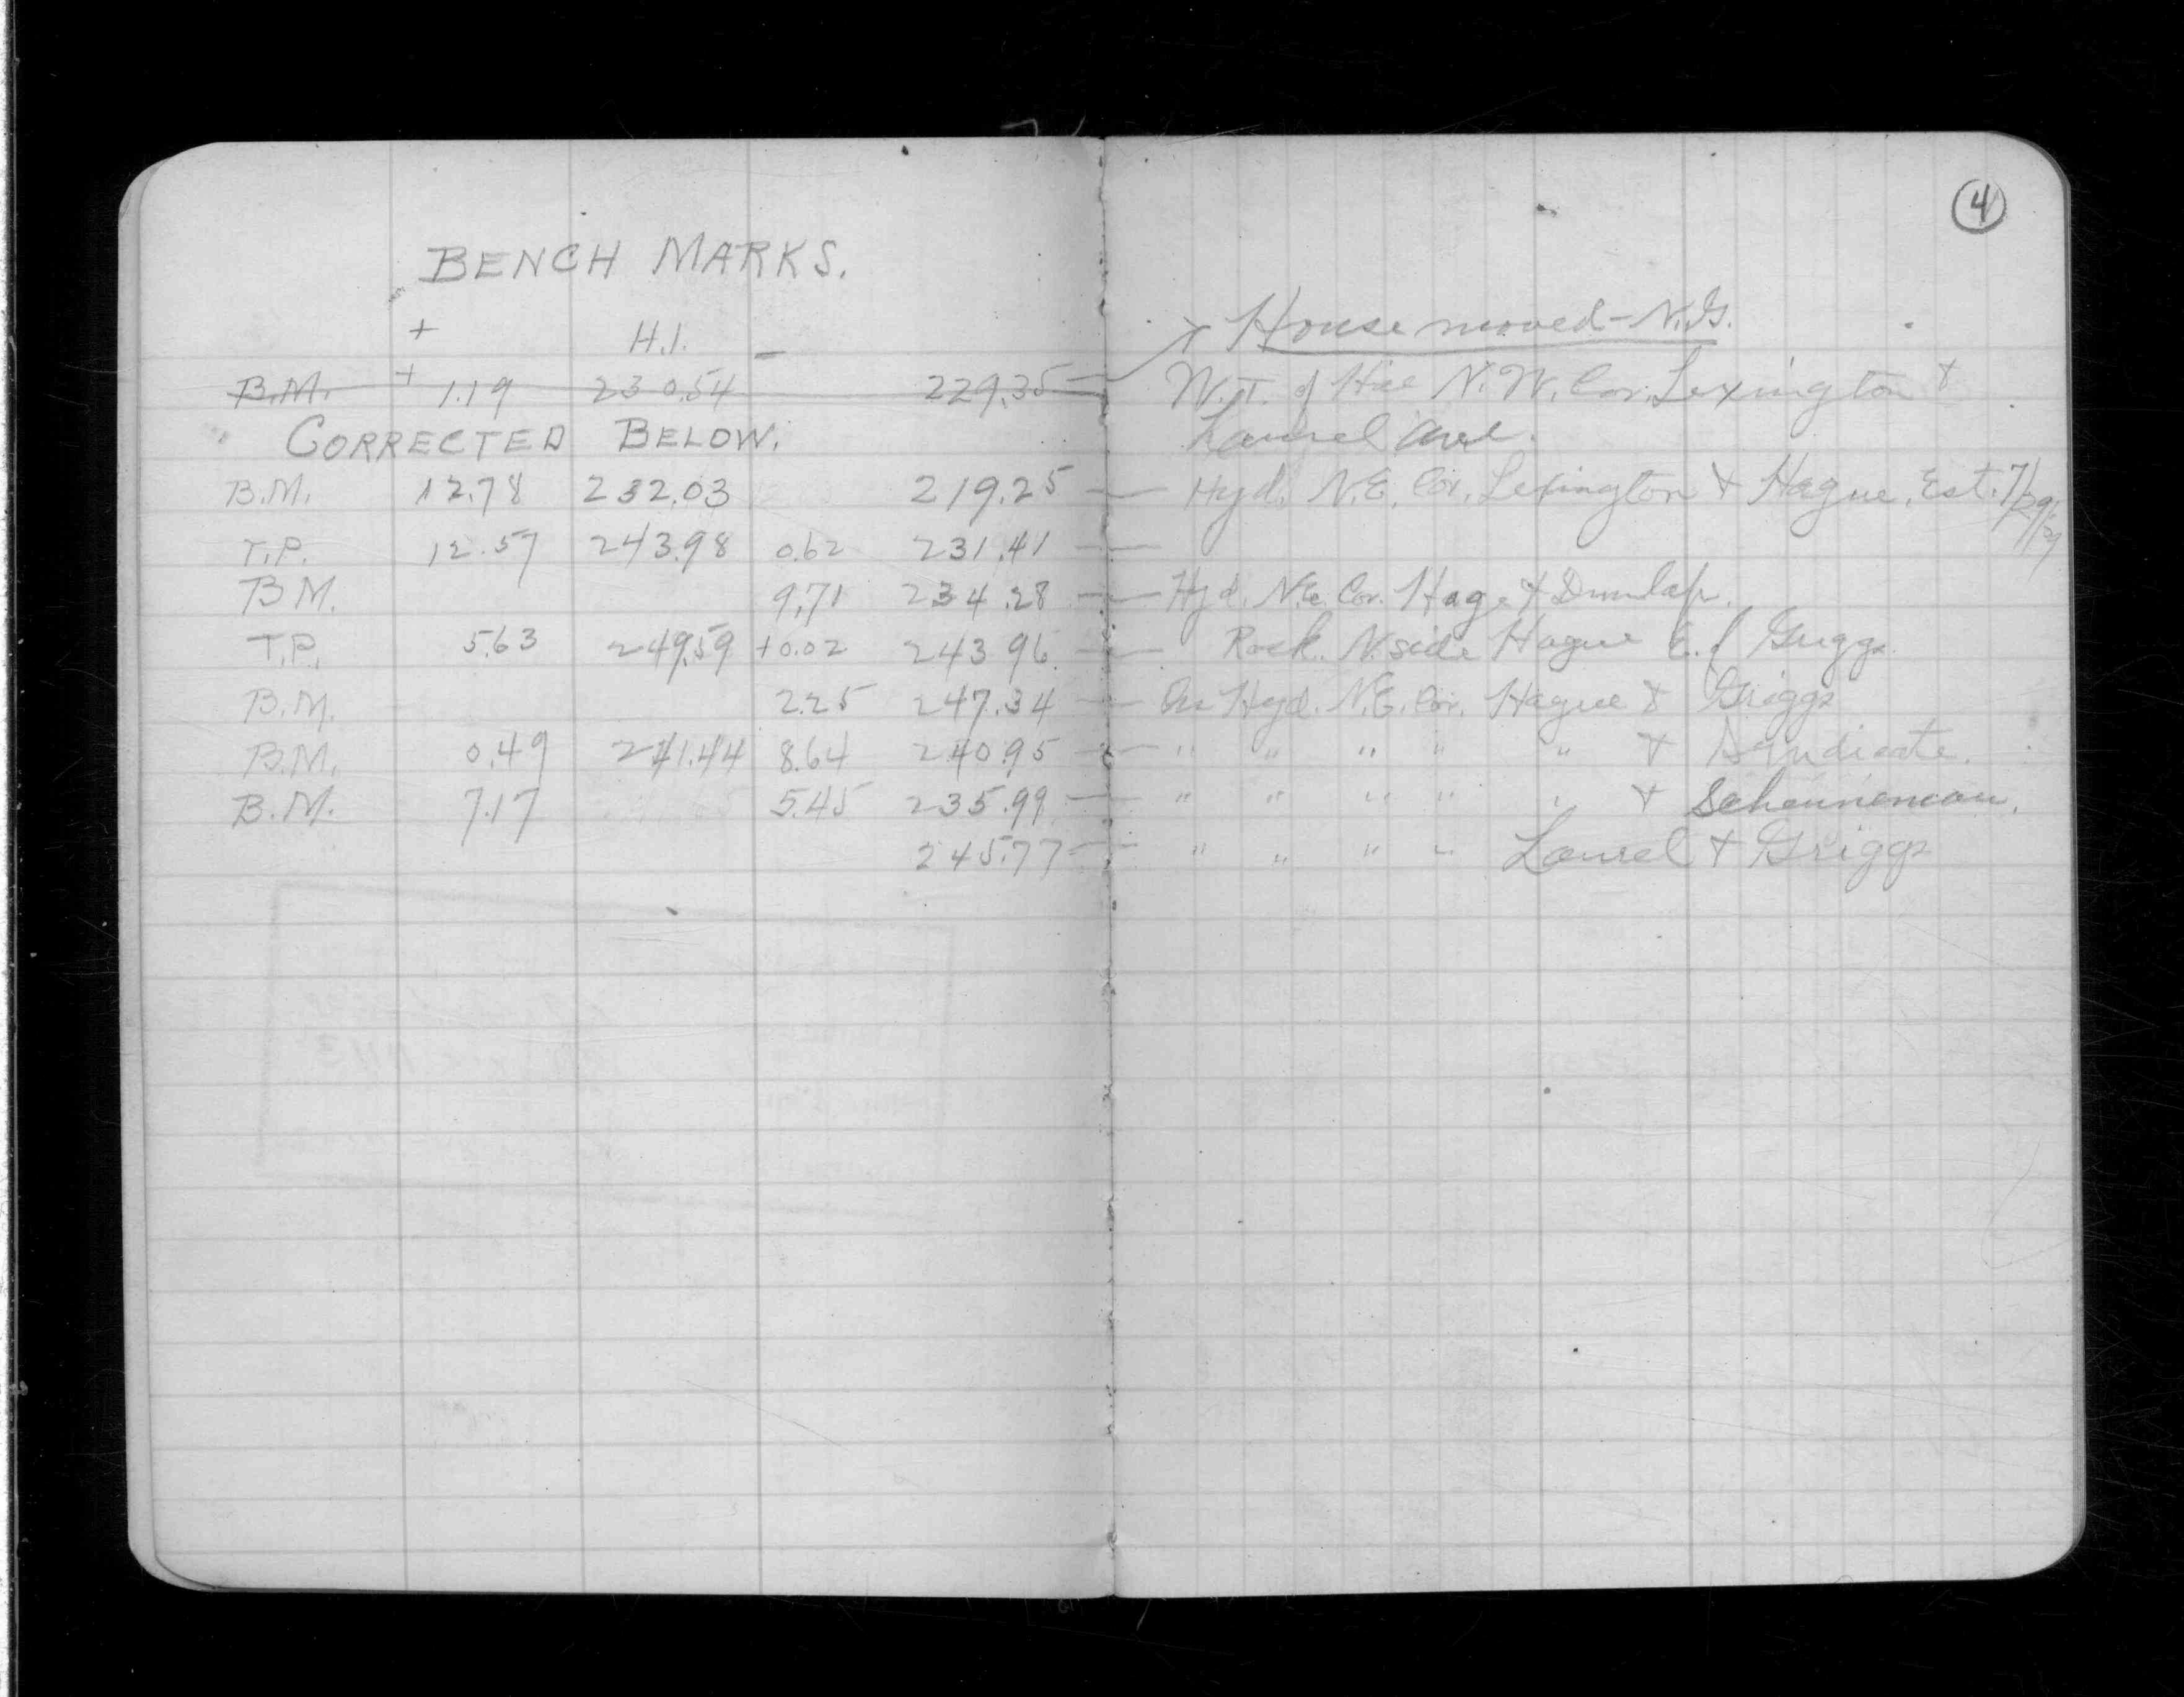 4
BENCH MARKS.
+ H.I. -
House moved - N.G.
B.M. + 1.19 230.54 229.35 W.T. of Hse N.W. Cor. Lexington &
CORRECTED BELOW. Laurel Ave.
B.M. 12.78 232.03 219.25 — Hyd. N.E. Cor. Lexington & Hague. Est. 7/29/29
T.P. 12.57 243.98 0.62 231.41 —
B.M. 9.71 234.28 — Hyd. N.E. Cor. Hage & Dunlap.
T.P. 5.63 249.59 +0.02 243.96 — Rock. N. side Hague E. of Griggs
B.M. 2.25 247.34 — On Hyd. N.E. Cor. Hague & Griggs
B.M. 0.49 241.44 8.64 240.95 — " " " " " & Syndicate.
B.M. 7.17 5.45 235.99 — " " " " " & Scheuneman.
245.77 — " " " " Laurel & Griggs